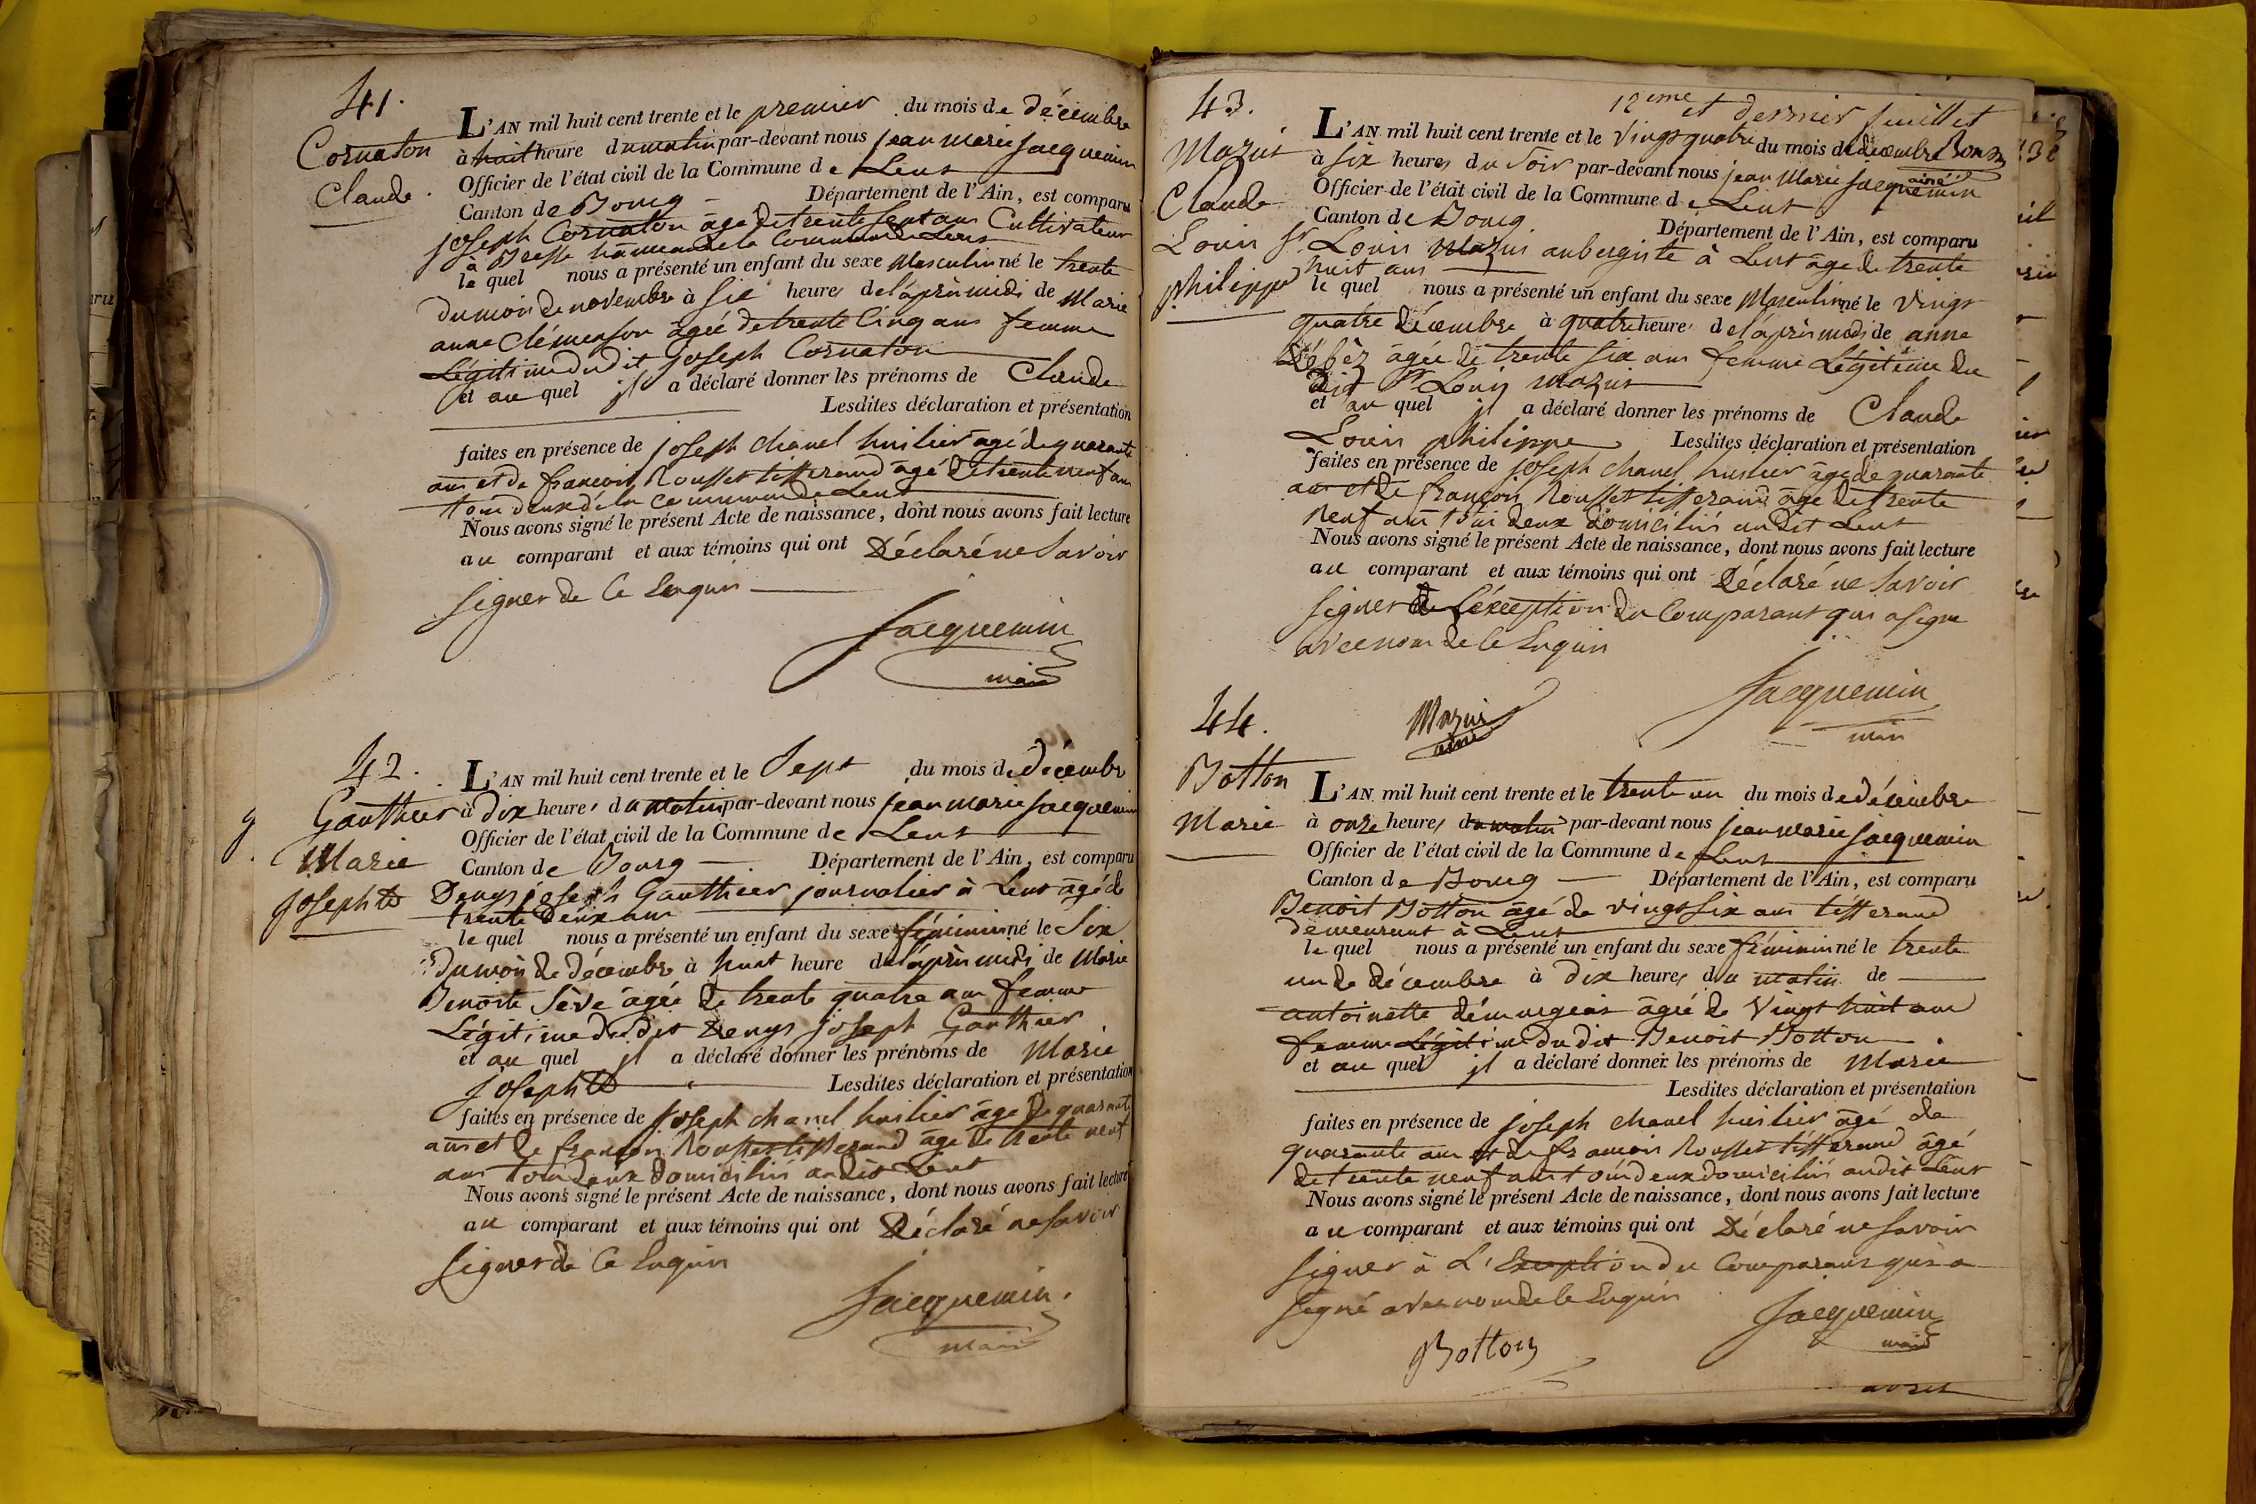 41.
Cornaton
Claude.
L'AN mil huit cent trente et le premier du mois de décembre
à huit heure du matin par-devant nous jean marie jacquemin
Officier de l'état civil de la Commune de Lent
Canton de Bourg Département de l'Ain, est comparu
joseph Cornaton âgé de trente sept ans Cultivateur
à Bresse hameau de la Commune de Lent
le quel nous a présenté un enfant du sexe Masculin né le trente
du mois de novembre à six heures de l'après midi de Marie
anne Clémenson âgée de trente Cinq ans femme
Légitime dudit joseph Cornaton
et au quel jl a déclaré donner les prénoms de Claude
Lesdites déclaration et présentation
faites en présence de joseph chanel huilier âgé de quarante
ans et de françois Rousset tisserand âgé de trente neuf ans
tous deux de la commune de Lent
Nous avons signé le présent Acte de naissance, dont nous avons fait lecture
au comparant et aux témoins qui ont Déclaré ne Savoir
signer de Ce Enquis
Jacquemin
maire
42.
g
Gauthier
Marie
josephte
L'AN mil huit cent trente et le Sept du mois de Décembre
à dix heures du matin par-devant nous jean marie jacquemin
Officier de l'état civil de la Commune de Lent
Canton de Bourg Département de l'Ain, est comparu
Denys joseph Gauthier journalier à Lent âgé de
trente deux ans
le quel nous a présenté un enfant du sexe féminin né le Six
du mois de décembre à huit heure de l'après midi de Marie
Benoite Sève âgée de trente quatre ans femme
Légitime du dit Denys joseph Gauthier
et au quel jl a déclaré donner les prénoms de Marie
josephte Lesdites déclaration et présentation
faites en présence de joseph chanel huilier âgé de quarante
ans et de françois Rousset tisserand âgé de trente neuf
ans tous deux Domiciliés audit Lent
Nous avons signé le présent Acte de naissance, dont nous avons fait lecture
au comparant et aux témoins qui ont Déclaré ne Savoir
signer de Ce Enquis
Jacquemin.
maire
12eme et dernier feuillet
43.
Mazuis
Claude
Louis
philippe
L'AN mil huit cent trente et le Vingt quatre du mois de décembre
à six heures du Soir par-devant nous jean Marie jacquemin
Officier de l'état civil de la Commune de Lent
Canton de Bourg Département de l'Ain, est comparu
Sr Louis Mazuis aubergiste à Lent âgé de trente
huit ans
le quel nous a présenté un enfant du sexe Masculin né le Vingt
quatre Décembre à quatre heures de l'après midi de anne
âgée de trente six ans femme Légitime du
dit Sr Louis Mazuis
et au quel jl a déclaré donner les prénoms de Claude
Louis philippe Lesdites déclaration et présentation
faites en présence de joseph chanel huilier âgé de quarante
ans et de françois Rousset tisserand âgé de trente
neuf ans tous deux domiciliés audit Lent
Nous avons signé le présent Acte de naissance, dont nous avons fait lecture
au comparant et aux témoins qui ont Déclaré ne Savoir
signer L'éxeeption du Comparant qui a signé
avec nous de Ce Enquis
Mazuis
ainé
Jacquemin
maire
44.
Botton
Marie
L'AN mil huit cent trente et le trente un du mois de décembre
à onze heures du matin par-devant nous jean marie jacquemin
Officier de l'état civil de la Commune de Lent
Canton de Bourg Département de l'Ain, est comparu
Benoit Botton âgé de vingt six ans tisserand
demeurant à Lent
le quel nous a présenté un enfant du sexe féminin né le trente
un de décembre à dix heures du matin de
antoinette âgée de Vingt huit ans
femme Légitime du dit Benoit Botton
et au quel jl a déclaré donner les prénoms de Marie
Lesdites déclaration et présentation
faites en présence de joseph chanel huilier âgé de
quarante ans et de françois Rousset tisserand âgé
de trente neuf ans tous deux domiciliés audit Lent
Nous avons signé le présent Acte de naissance, dont nous avons fait lecture
au comparant et aux témoins qui ont Déclaré ne Savoir
signer à L'Exeption du Comparant qui a
signé avec nous de Ce Enquis
Botton
Jacquemin
maire